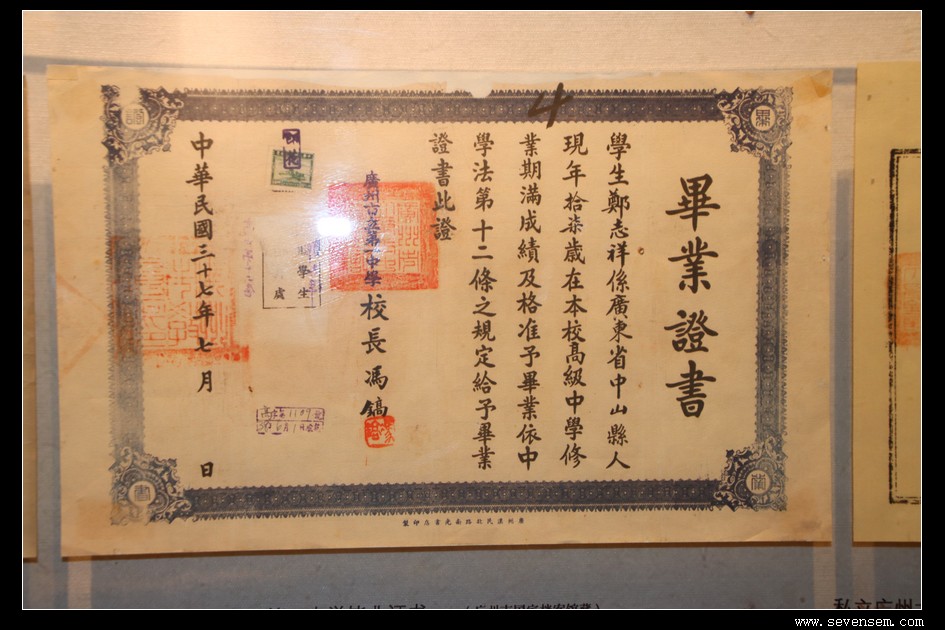 畢業證書
學生鄭志祥係廣東省中山縣人
現年拾柒歲在本校高級中學修
業期滿成績及格准予畢業依中
學法第十二條之規定給予畢業
證書此證
廣州市立第一中學校長馮鎬
中華民國三十七年七月 日
4
學生
處
廣州漢民北路南光書店印製
私立广州
www.sevensem.com